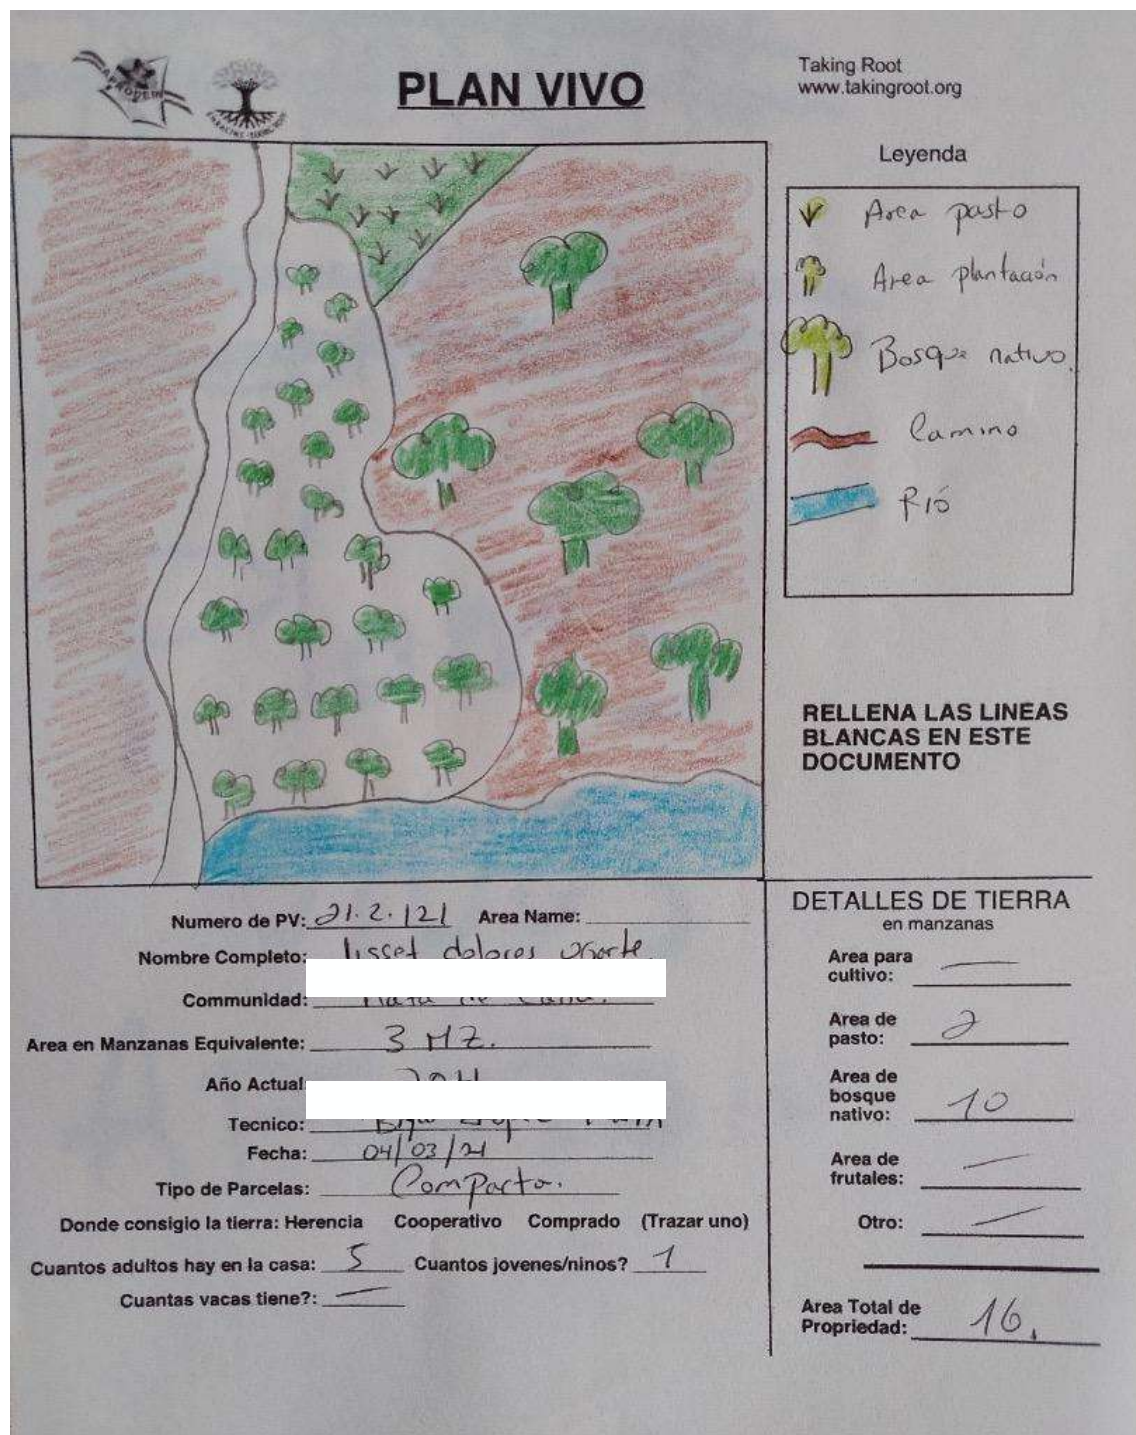 APRODEIN
PLAN VIVO
Taking Root
www.takingroot.org
Leyenda
Area pasto
Area plantación
Bosque nativo.
Camino
Rió
RELLENA LAS LINEAS
BLANCAS EN ESTE
DOCUMENTO
Numero de PV: 21.2.121 Area Name:
Nombre Completo: lisset dolores ugarte
Communidad:
Area en Manzanas Equivalente: 3 MZ.
Año Actual:
Tecnico:
Fecha: 04/03/21
Tipo de Parcelas: Compacta.
Donde consigio la tierra: Herencia Cooperativo Comprado (Trazar uno)
Cuantos adultos hay en la casa: 5 Cuantos jovenes/ninos? 1
Cuantas vacas tiene?: —
DETALLES DE TIERRA
en manzanas
Area para
cultivo: —
Area de
pasto: 2
Area de
bosque
nativo: 10
Area de
frutales: —
Otro: —
Area Total de
Propriedad: 16.